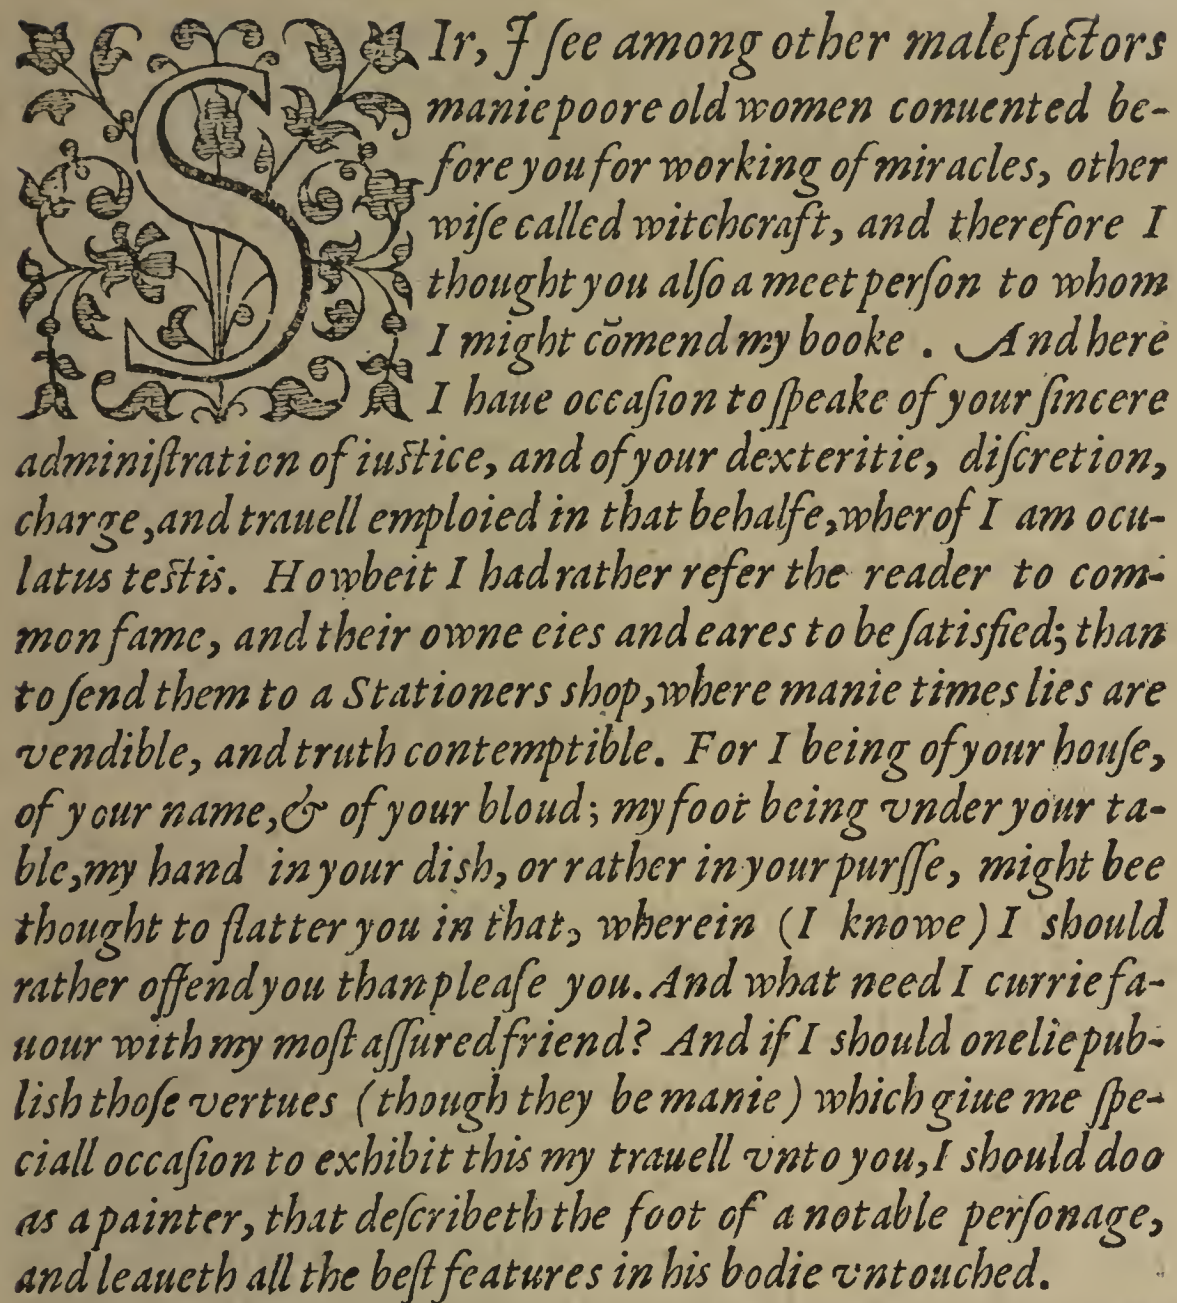 SIr, I ſee among other malefactors
manie poore old women conuented be-
fore you for working of miracles, other
wiſe called witchcraft, and therefore I
thought you alſo a meet perſon to whom
I might cõmend my booke . And here
I haue occaſion to ſpeake of your ſincere
adminiſtration of iuſtice, and of your dexteritie, diſcretion,
charge, and trauell emploied in that behalfe, wherof I am ocu-
latus teſtis. Howbeit I had rather refer the reader to com-
mon fame, and their owne eies and eares to be ſatisfied; than
to ſend them to a Stationers shop, where manie times lies are
vendible, and truth contemptible. For I being of your houſe,
of your name, & of your bloud; my foot being vnder your ta-
ble, my hand in your dish, or rather in your purſſe, might bee
thought to flatter you in that, wherein (I knowe) I should
rather offend you than pleaſe you. And what need I currie fa-
uour with my moſt aſſured friend? And if I should onelie pub-
lish thoſe vertues (though they be manie) which giue me ſpe-
ciall occaſion to exhibit this my trauell vnto you, I should doo
as a painter, that deſcribeth the foot of a notable perſonage,
and leaueth all the beſt features in his bodie vntouched.